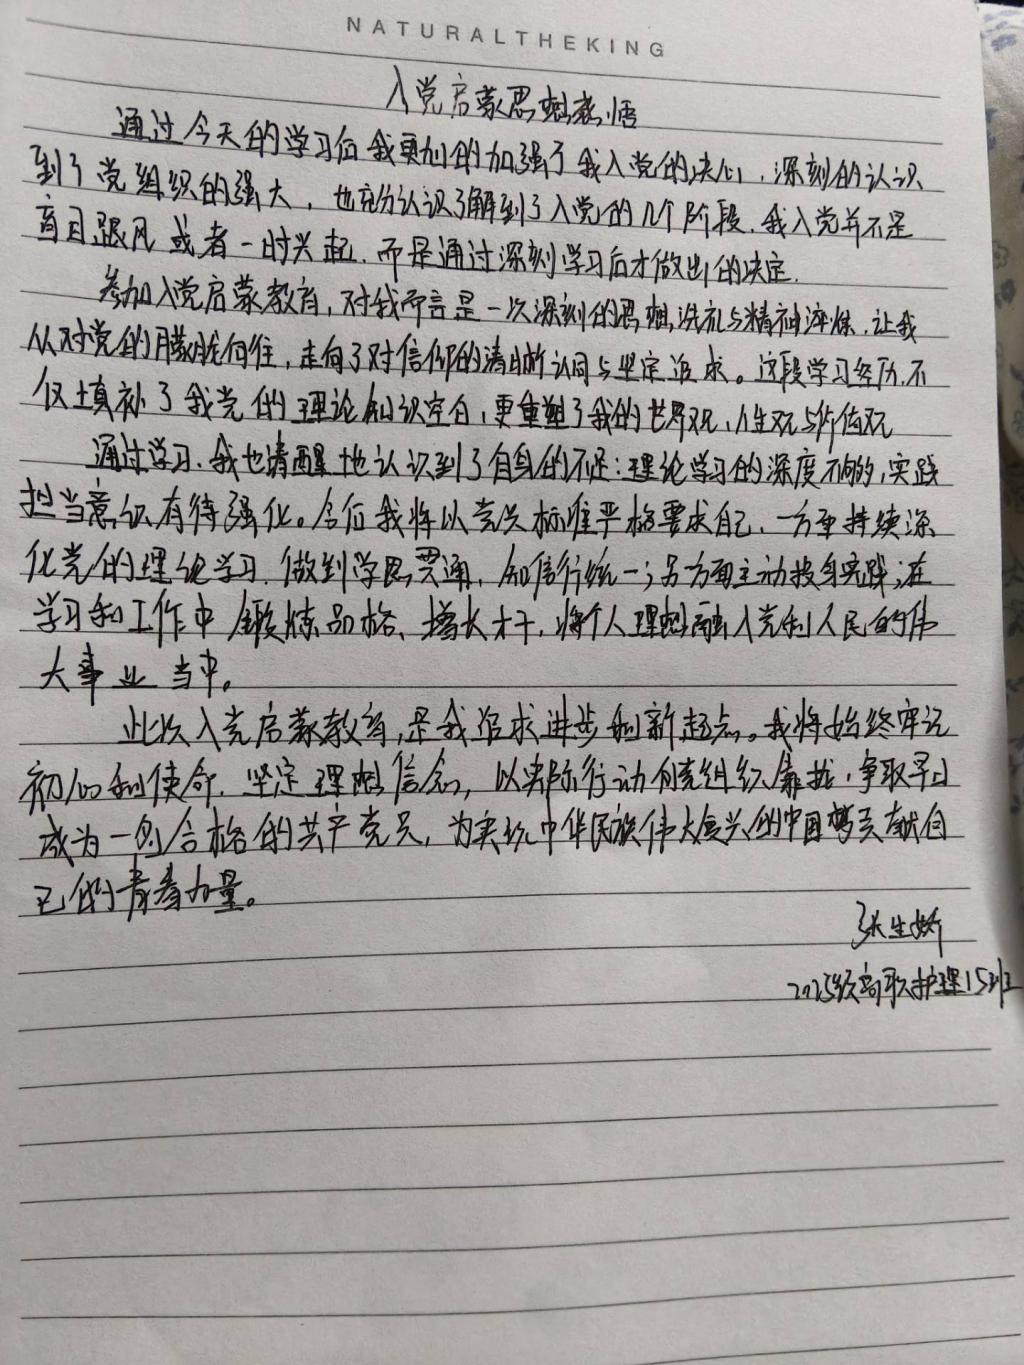 NATURALTHEKING
入党启蒙思想感悟
通过今天的学习后我更加的加强了我入党的决心，深刻的认识
到了党组织的强大，也充分认识了解到了入党的几个阶段，我入党并不是
盲目跟风或者一时兴起，而是通过深刻学习后才做出的决定.
参加入党启蒙教育，对我而言是一次深刻的思想洗礼与精神淬炼，让我
从对党的朦胧向往，走向了对信仰的清晰认同与坚定追求。这段学习经历，不
仅填补了我党的理论知识空白，更重塑了我的世界观、人生观与价值观
通过学习，我也清醒地认识到了自身的不足：理论学习的深度不够的，实践
担当意识有待强化。今后我将以党员标准严格要求自己，一方面持续深
化党的理论学习，做到学思贯通，知信行统一；另方面主动投身实践，在
学习和工作中锻炼品格、增长才干，将个人理想融入党和人民的伟
大事业当中。
此次入党启蒙教育，是我追求进步的新起点。我将始终牢记
初心和使命，坚定理想信念，以实际行动向党组织靠拢，争取早日
成为一名合格的共产党员，为实现中华民族伟大复兴的中国梦贡献自
己的青春力量。
张生娇
2025级高职护理15班